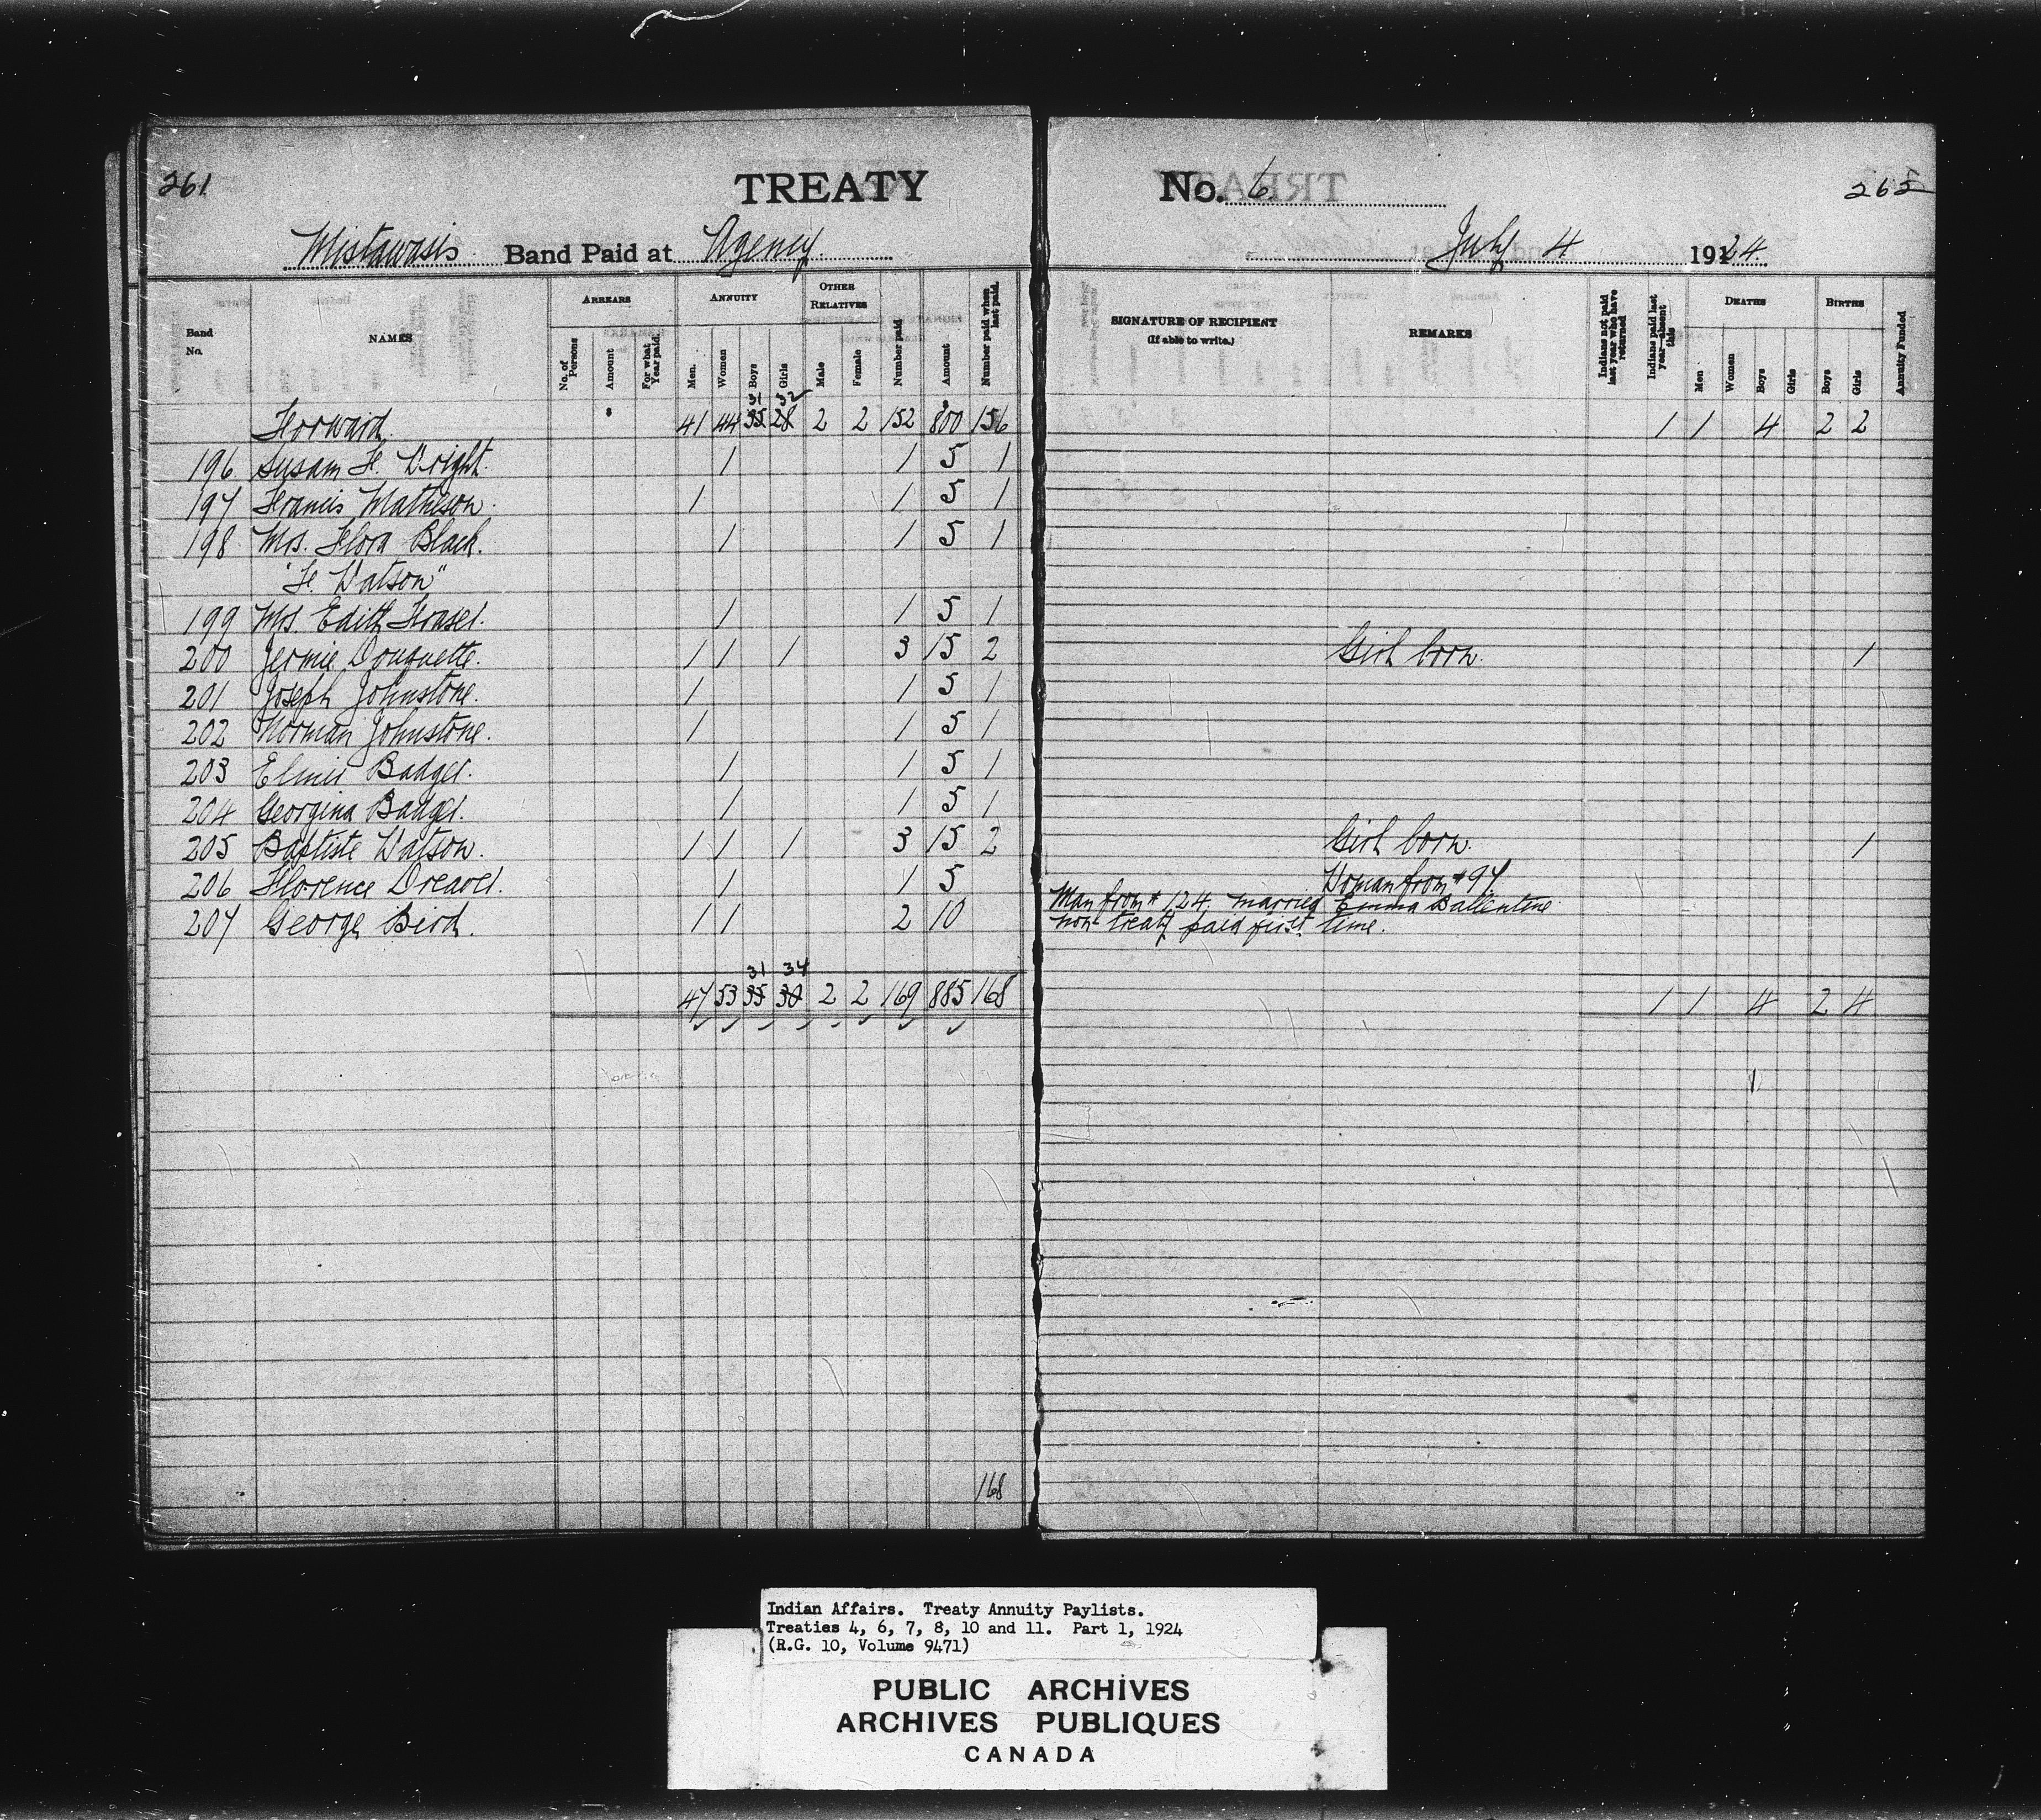 261
TREATY
No. 6
262
Mistawasis Band Paid at Agency
July 4 1924.
Band No.
NAMES
ARREARS
No. of Persons
Amount
For what Year paid.
ANNUITY
Men.
Women
Boys
Girls
OTHER RELATIVES
Male
Female
Number paid
Amount
Number paid when last paid.
SIGNATURE OF RECIPIENT
(If able to write.)
REMARKS
Indians not paid last year who have returned
Indians paid last year—absent this
DEATHS
Men
Women
Boys
Girls
BIRTHS
Boys
Girls
Annuity Funded
31 32
Forward. $ 41 44 35 28 2 2 152 800 156 1 1 4 2 2
196 Susan F. Wright. 1 1 5 1
197 Francis Matheson. 1 1 5 1
198 Mrs. Flora Black. 1 1 5 1
"F. Watson"
199 Mrs. Edith Fraser. 1 1 5 1
200 Jermie Douquette. 1 1 1 3 15 2 Girl born. 1
201 Joseph Johnstone. 1 1 5 1
202 Norman Johnstone. 1 1 5 1
203 Badger. 1 1 5 1
204 Georgina Badger. 1 1 5 1
205 Baptiste Watson. 1 1 1 3 15 2 Girl born. 1
206 Florence Dreaver. 1 1 5 Woman from #97.
207 George Bird. 1 1 2 10 Man from # 124. married Emma Ballentine
non-treaty paid first time.
31 34
47 53 35 30 2 2 169 885 168 1 1 4 2 4
1
168
Indian Affairs. Treaty Annuity Paylists.
Treaties 4, 6, 7, 8, 10 and 11. Part 1, 1924
(R.G. 10, Volume 9471)
PUBLIC ARCHIVES
ARCHIVES PUBLIQUES
CANADA